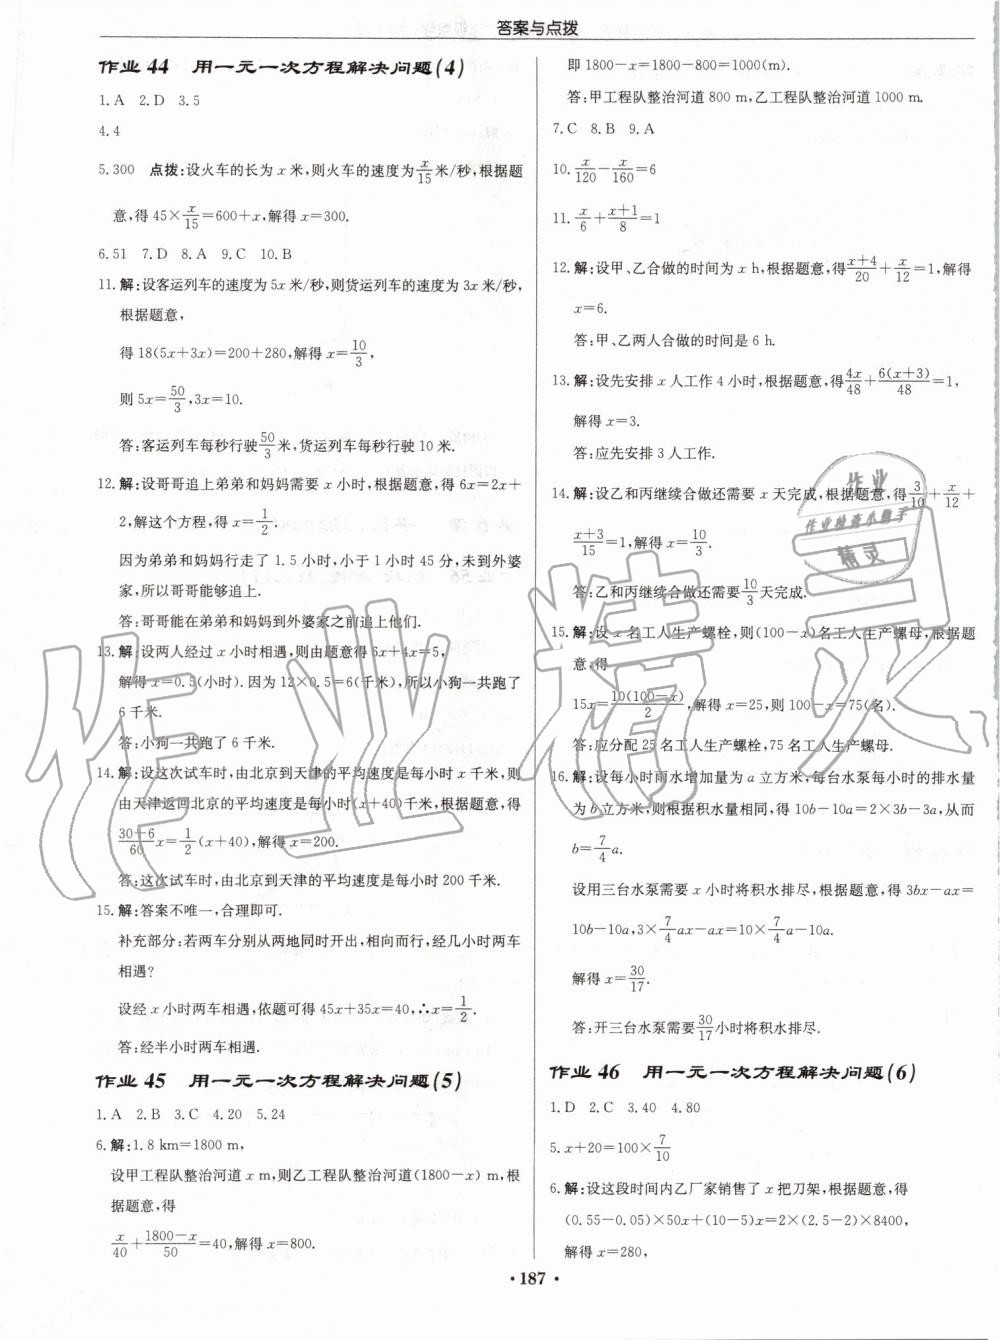 答案与点拨
作业 44　用一元一次方程解决问题(4)
1. A　2. D　3. 5
4. 4
5. 300　点拨:设火车的长为 x 米,则火车的速度为x/15米/秒,根据题
意,得 45×x/15=600+x,解得 x=300.
6. 51　7. D　8. A　9. C　10. B
11. 解:设客运列车的速度为 5x 米/秒,则货运列车的速度为 3x 米/秒,
根据题意,
得 18(5x+3x)=200+280,解得 x=10/3,
则 5x=50/3,3x=10.
答:客运列车每秒行驶50/3米,货运列车每秒行驶 10 米.
12. 解:设哥哥追上弟弟和妈妈需要 x 小时,根据题意,得 6x=2x+
2,解这个方程,得 x=1/2.
因为弟弟和妈妈行走了 1.5 小时,小于 1 小时 45 分,未到外婆
家,所以哥哥能够追上.
答:哥哥能在弟弟和妈妈到外婆家之前追上他们.
13. 解:设两人经过 x 小时相遇,则由题意得 6x+4x=5,
解得 x=0.5(小时). 因为 12×0.5=6(千米),所以小狗一共跑了
6 千米.
答:小狗一共跑了 6 千米.
14. 解:设这次试车时,由北京到天津的平均速度是每小时 x 千米,则
由天津返回北京的平均速度是每小时(x+40)千米,根据题意,得
30+6/60x=1/2(x+40),解得 x=200.
答:这次试车时,由北京到天津的平均速度是每小时 200 千米.
15. 解:答案不唯一,合理即可.
补充部分:若两车分别从两地同时开出,相向而行,经几小时两车
相遇?
设经 x 小时两车相遇,依题可得 45x+35x=40,∴x=1/2.
答:经半小时两车相遇.
作业 45　用一元一次方程解决问题(5)
1. A　2. B　3. C　4. 20　5. 24
6. 解:1.8 km=1800 m,
设甲工程队整治河道 x m,则乙工程队整治河道(1800-x) m,根
据题意,得
x/40+1800-x/50=40,解得 x=800.
即 1800-x=1800-800=1000(m).
答:甲工程队整治河道 800 m,乙工程队整治河道 1000 m.
7. C　8. B　9. A
10. x/120-x/160=6
11. x/6+x+1/8=1
12. 解:设甲、乙合做的时间为 x h,根据题意,得x+4/20+x/12=1,解得
x=6.
答:甲、乙两人合做的时间是 6 h.
13. 解:设先安排 x 人工作 4 小时,根据题意,得4x/48+6(x+3)/48=1,
解得 x=3.
答:应先安排 3 人工作.
14. 解:设乙和丙继续合做还需要 x 天完成,根据题意,得3/10+x/12+
x+3/15=1,解得 x=10/3.
答:乙和丙继续合做还需要10/3天完成.
15. 解:设 x 名工人生产螺栓,则(100-x)名工人生产螺母,根据题
意,得
15x=10(100-x)/2,解得 x=25,则 100-x=75(名).
答:应分配 25 名工人生产螺栓,75 名工人生产螺母.
16. 解:设每小时雨水增加量为 a 立方米,每台水泵每小时的排水量
为 b 立方米,则根据积水量相同,得 10b-10a=2×3b-3a,从而
b=7/4a.
设用三台水泵需要 x 小时将积水排尽,根据题意,得 3bx-ax=
10b-10a,3×7/4ax-ax=10×7/4a-10a.
解得 x=30/17.
答:开三台水泵需要30/17小时将积水排尽.
作业 46　用一元一次方程解决问题(6)
1. D　2. C　3. 40　4. 80
5. x+20=100×7/10
6. 解:设这段时间内乙厂家销售了 x 把刀架,根据题意,得
(0.55-0.05)×50x+(10-5)x=2×(2.5-2)×8400,
解得 x=280,
· 187 ·
作业精灵
作业
作业检查小助手
精灵